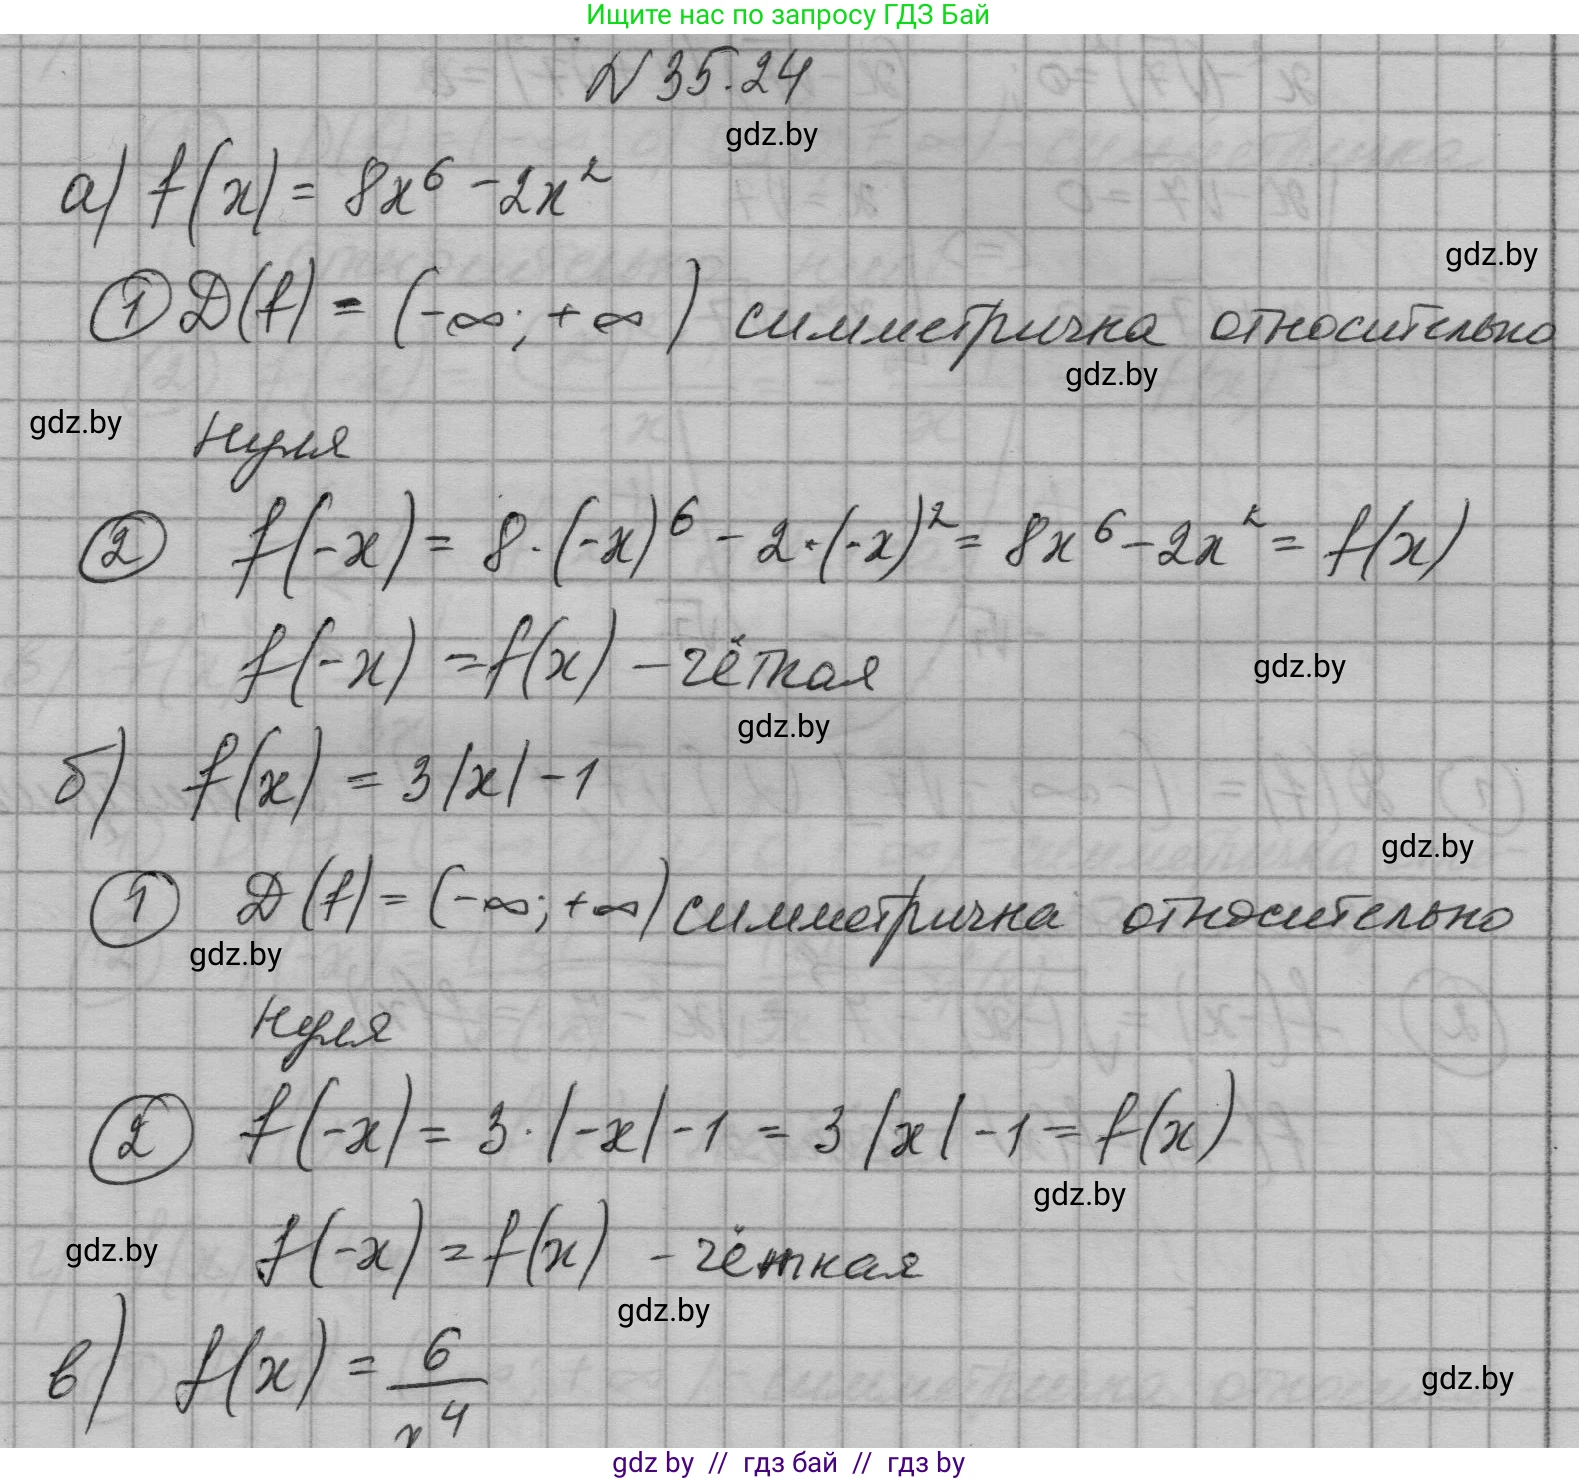 Ищите нас по запросу ГДЗ Бай
N 35.24
gdz.by
а) f(x) = 8x⁶ - 2x²
gdz.by
① D(f) = (-∞; +∞) симметрична относительно
gdz.by
gdz.by
нуля
② f(-x) = 8·(-x)⁶ - 2·(-x)² = 8x⁶ - 2x² = f(x)
f(-x) = f(x) - чёткая
gdz.by
gdz.by
б) f(x) = 3|x| - 1
gdz.by
① D(f) = (-∞; +∞) симметрична относительно
gdz.by
нуля
② f(-x) = 3·|-x| - 1 = 3|x| - 1 = f(x)
gdz.by
f(-x) = f(x) - чётная
gdz.by
gdz.by
в) f(x) = 6/x⁴
gdz.by
gdz by // гдз бай // гдз by